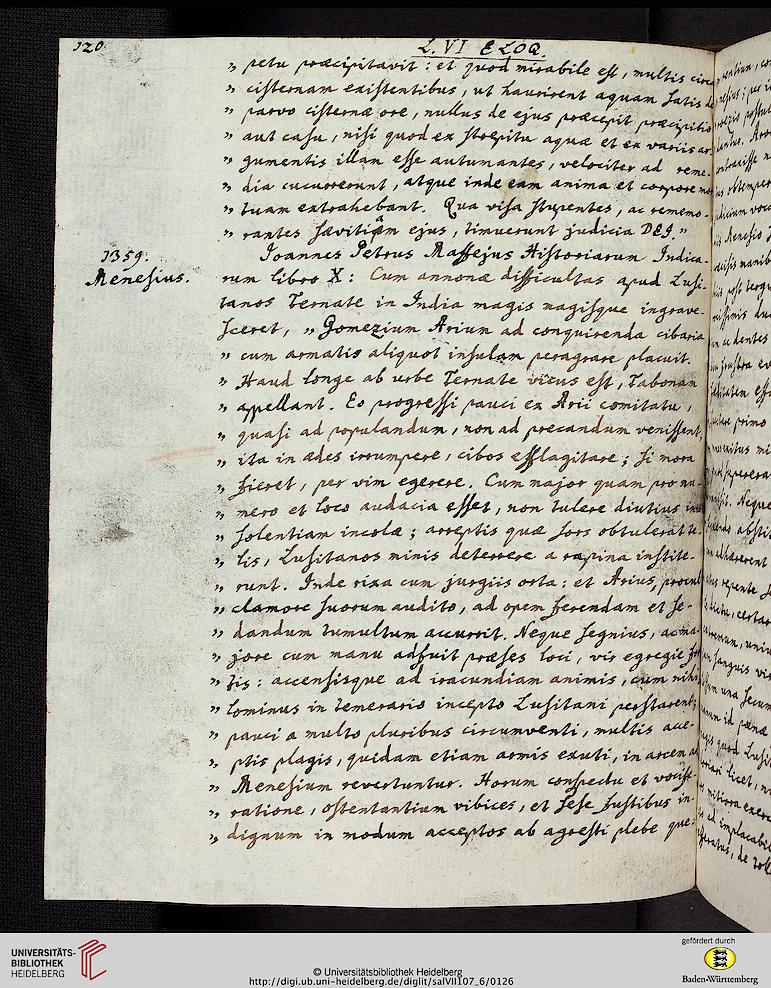 120
L. VI ELOQ.
„ petu præcipitavit : et quod mirabile est, multis circa
„ cisternam existentibus, ut haurirent aquam satis de
„ parvo cisternæ ore, nullus de ejus præcepit præcipitio
„ aut casu, nisi quod ex strepitu aquæ et ex variis ar-
„ gumentis illam esse autumantes, velociter ad reme-
„ dia cucurrerunt, atque inde eam anima et corpore mor
„ tuam extrahebant. Qua visa stupentes, ac rememo-
„ rantes sævitiam ejus, timuerunt judicia DEI."
1359.
Menesius.
Joannes Petrus Maffejus Historiarum Indica-
rum libro X: Cum annonæ difficultas apud Lusi-
tanos Ternate in India magis magisque ingrave-
sceret, „ Gomezium Arium ad conquirenda cibaria
„ cum armatis aliquot insulam peragrare placuit.
„ Haud longe ab urbe Ternate vicus est, Tabonam
„ appellant. Eo progressi pauci ex Arii comitatu,
„ quasi ad populandum, non ad precandum venissent,
„ ita in ædes irrumpere, cibos efflagitare ; si mora
„ fieret, per vim egerere. Cum major quam pro nu-
„ mero et loco audacia esset, non tulere diutius in
„ solentiam incolæ ; arreptis quæ sors obtulerat te-
„ lis, Lusitanos minis deterrere a rapina instite-
„ runt. Inde rixa cum jurgiis orta : et Arius, procul
„ clamore suorum audito, ad opem ferendam et se-
„ dandum tumultum accurrit. Neque segnius, ac ma-
„ jore cum manu adfuit præses loci, vir egregie for
„ tis : accensisque ad iracundiam animis, cum nihi
„ lominus in temerario incepto Lusitani perstarent,
„ pauci a multo pluribus circumventi, multis acce-
„ ptis plagis, quidam etiam armis exuti, in arcem ad
„ Menesium revertuntur. Horum conspectu et vocife-
„ ratione, ostentantium vibices, et sese fustibus in-
„ dignum in modum acceptos ab agresti plebe que-
UNIVERSITÄTS-
BIBLIOTHEK
HEIDELBERG
© Universitätsbibliothek Heidelberg
http://digi.ub.uni-heidelberg.de/diglit/salVII107_6/0126
gefördert durch
Baden-Württemberg